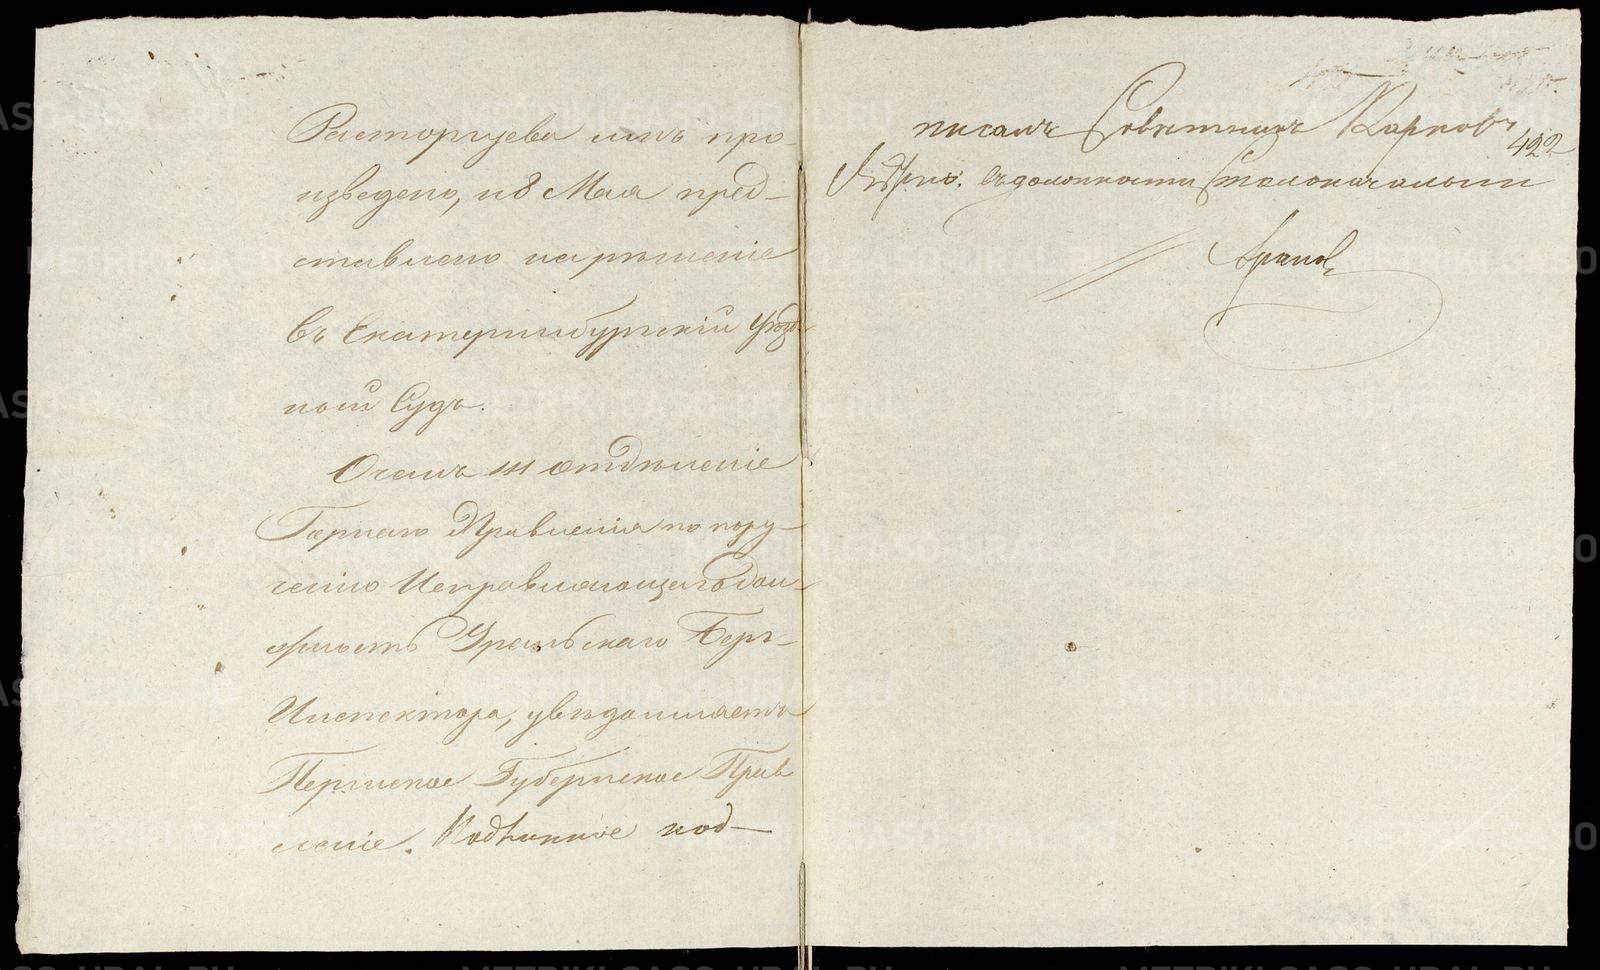 Расторгуева имъ про-
изведено, и 8 Мая пред-
ставлено на рѣшеніе
въ Екатеринбургскій Уѣзд-
ной Судъ.
О чемъ III отдѣленіе
Горнаго Правленія по пору-
ченію Исправляющаго дол-
жность Уральскаго Бергъ-
Инспектора, увѣдомляетъ
Пермское Губернское Прав
леніе. Подлинное под-
писалъ Совѣтникъ Карповъ
422
Вѣрно: Въ должности Столоначальника
METRIKI.GASO-URAL.RU